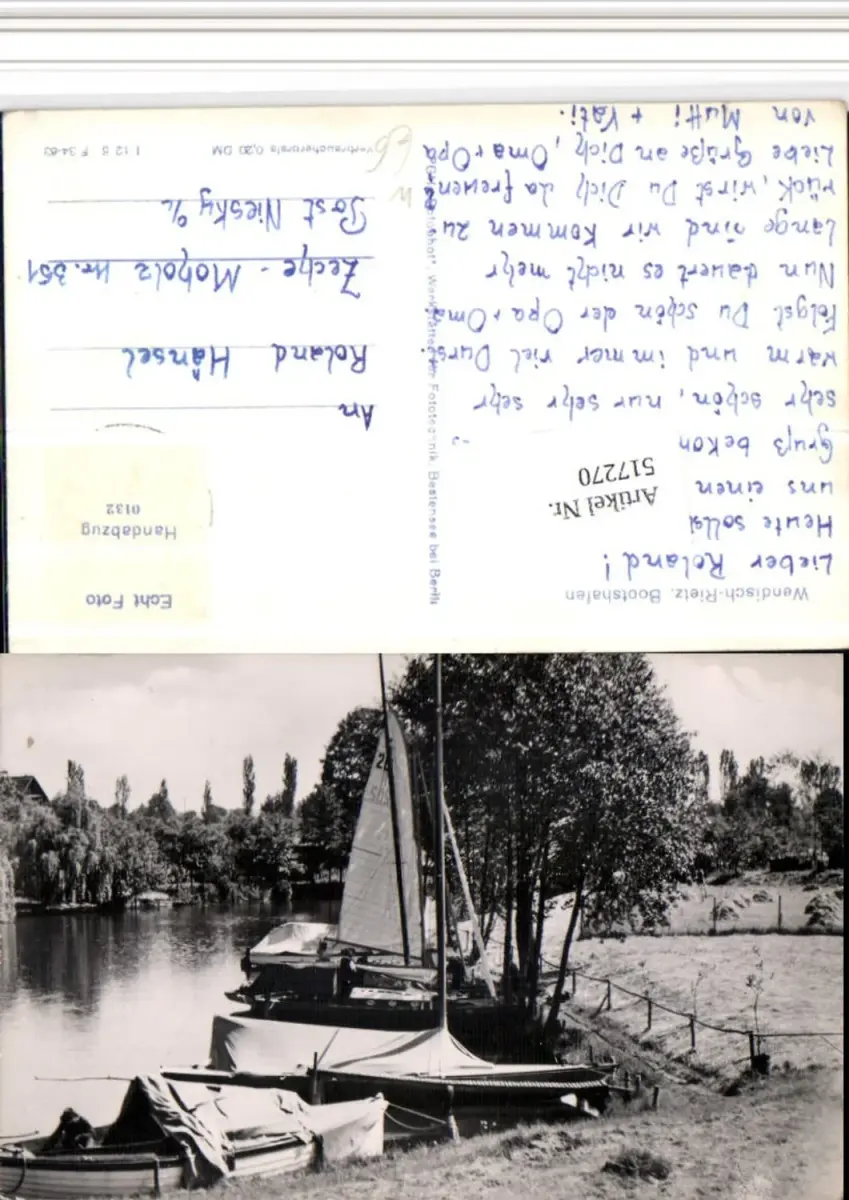 Wendisch-Rietz, Bootshafen
Lieber Roland!
Heute solls
uns einen
Gruß bekom
sehr schön, nur sehr sehr
warm und immer viel Durst.
Folgst Du schön der Opa + Oma.
Nun dauert es nicht mehr
lange und wir kommen zu
rück, wirst Du Dich da freuen?
Liebe Grüße an Dich, Oma + Opa
von Mutti + Vati.
Artikel Nr.
517270
Werkstätten der Fototechnik, Bestensee bei Berlin
Echt Foto
Handabzug
0132
An
Roland Hänsel
Zeche-Moholz Nr. 351
Post Niesky O/L
Verbraucherpreis 0,20 DM
I 12 8 F 34-60
2